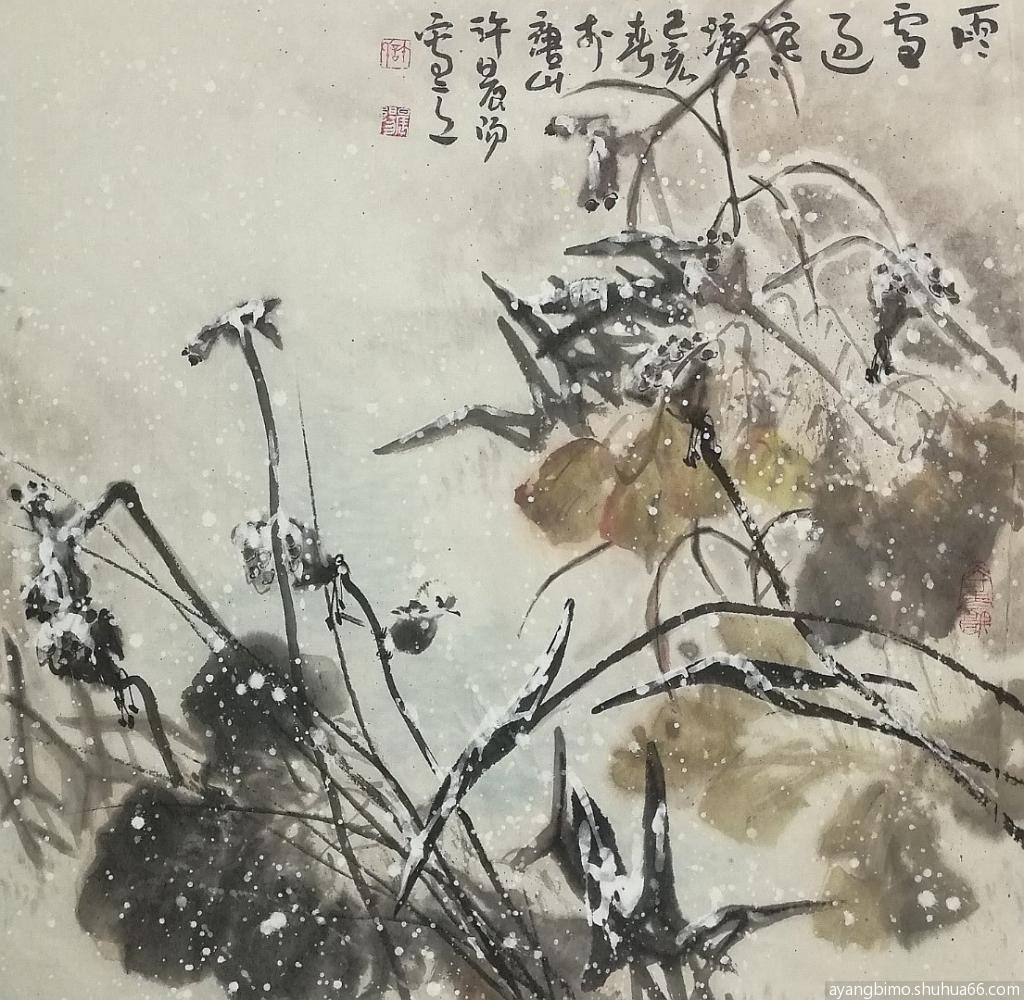 雨
雪
过
寒
塘
己亥
春
于
唐山
许晨阳
之
许
ayangbimo.shuhua66.com